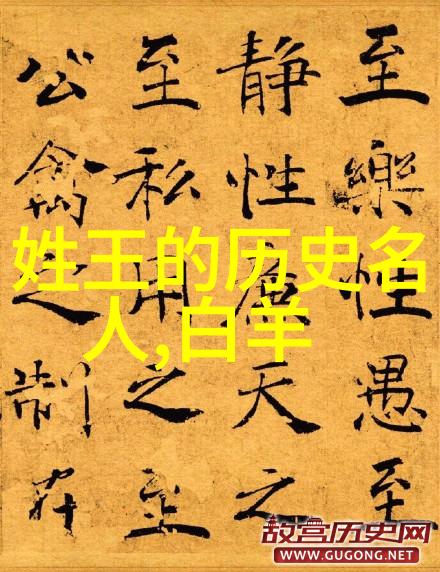 至樂性愚至
静性廉天之
至私用之至
公禽之制在
姓王的历史名
人,白羊
故宫历史网
WWW.GUGONG.NET